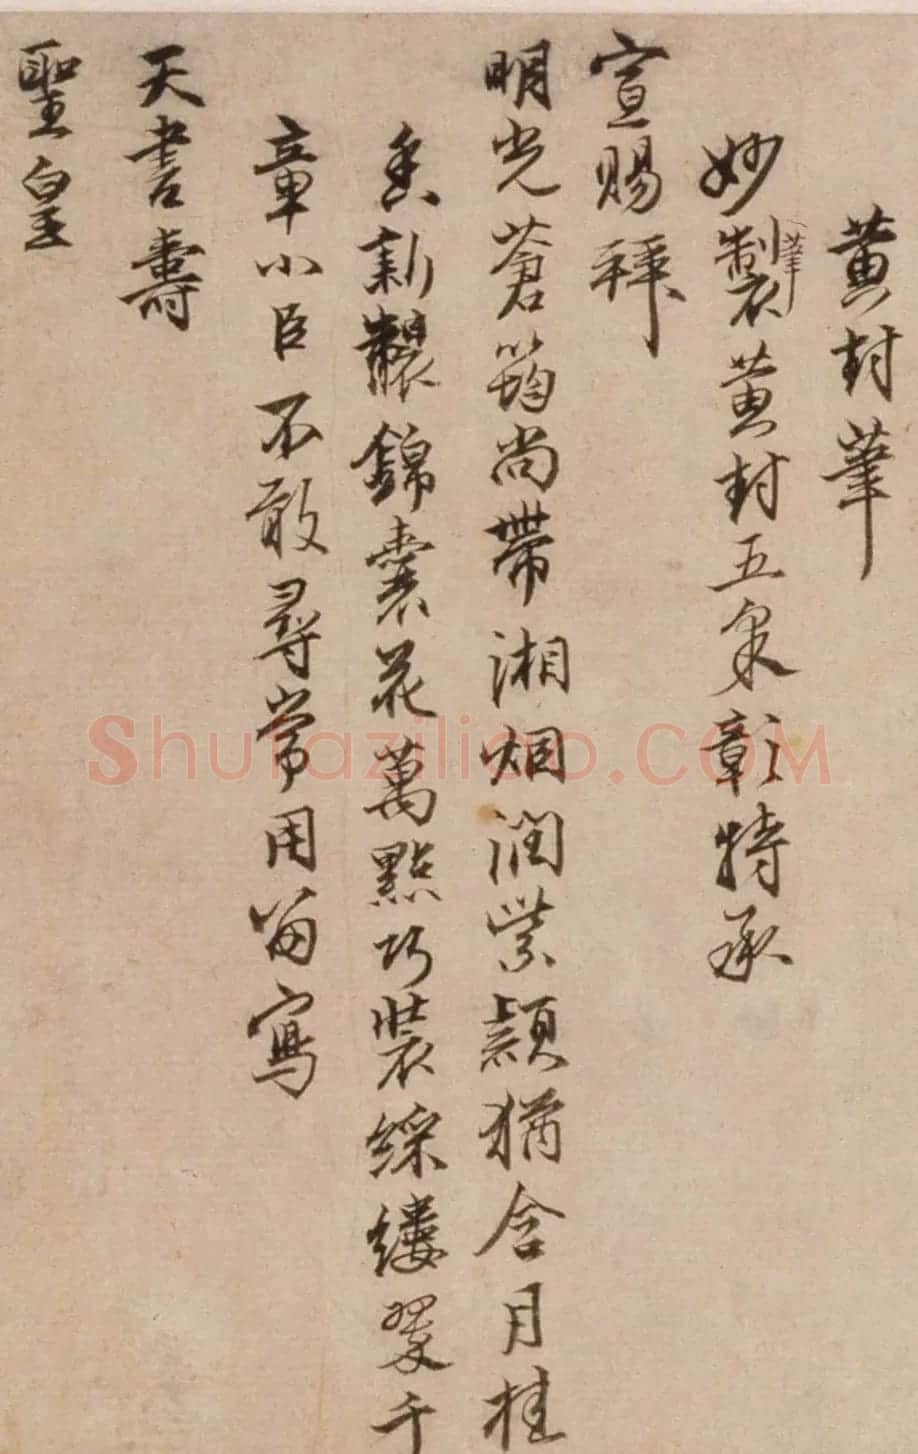 黄封筆
妙製黄封五采彰特承
筆
宣賜拜
明光蒼筠尚帶湘烟潤紫穎猶含月桂
香新錦囊花萬點巧裝綵縷翠千
章小臣不敢尋常用留寫
天書壽
聖皇
Shufaziliao.COM